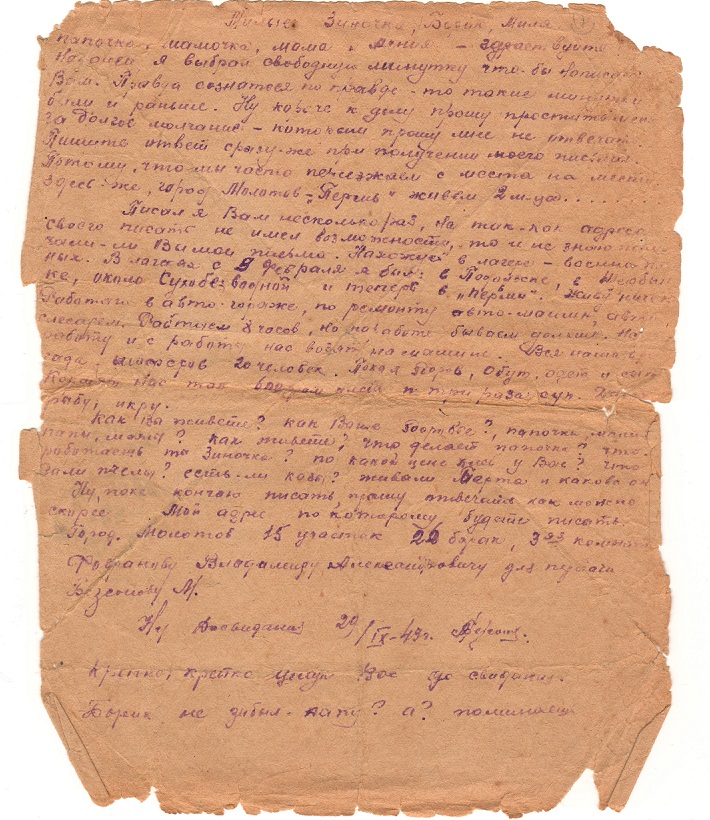 Милые Зиночка, Боря, Миля
папочка, мамочка, мама, Женя – здравствуйте
я выбрал свободную минутку что-бы написать
Вам. Правда сознаться по правде-то такие минутки
были и раньше. Ну короче к делу прошу простить меня
за долгое молчание – потом прошу мне не отвечать.
Пишите ответ сразу-же при получении моего письма.
Потому, что мы часто переезжаем с места на место
здесь-же, город Молотов "Пермь" живем 2 м-ца......
Писал я Вам несколько раз, но так-как адреса
своего писать не имел возможности, то и не знаю полу-
чали-ли Вы мои письма. Нахожусь в лагере – военно-
ных. В лагерь с 9 февраля я был: в Подольске, в
ке, около Сухобезводной и теперь в "Перми". Живу ничего
Работаю в авто-гараже, по ремонту авто-машин, авто-
слесарем. Работаем 8 часов, но на работе бываем дольше. На
работу и с работы нас возят на машине. Вся наша
шоферов 20 человек. Пока здоров, обут, одет и сыт
Кормят нас три раза, суп,
рыбу, икру.
Как Вы живете? как Ваше здоровье?, папочка, мамы
папы, мамы? как живете, что делает папочка? что
работаешь ты Зиночка? по какой цене хлеб у Вас? что
дали пчелы? есть-ли козы? живали Мерта и какова он
Ну, пока кончаю писать, прошу отвечать как можно
скорее. Мой адрес по которому будете писать.
Город. Молотов 15 участок 22 барак, 3ая комната
Владимиру Александровичу для передачи
Безсонову М.
Ну Досвидания 29/IX-43г.
Крепко, крепко целую Вас до свидания.
Борик не забыл папу? а? помнишь